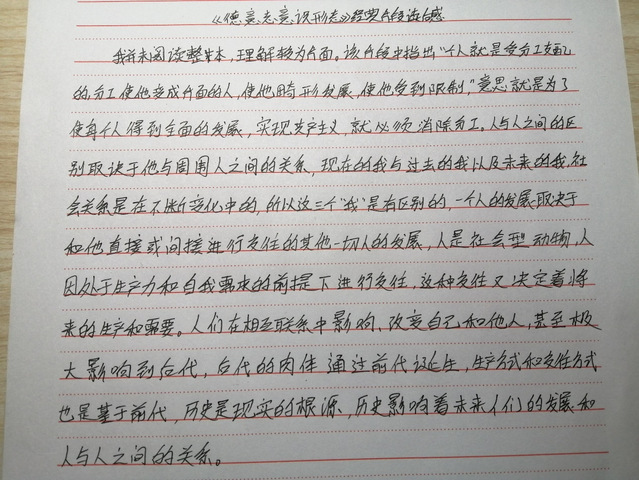 《德意志意识形态》经典片段读后感
我并未阅读整本,理解较为片面。该片段中指出“个人就是受分工支配
的,分工使他变成片面的人,使他畸形发展,使他受到限制,”意思就是为了
使每个人得到全面的发展,实现共产主义,就必须消除分工。人与人之间的区
别取决于他与周围人之间的关系,现在的我与过去的我以及未来的我,社
会关系是在不断变化中的,所以这三个“我”是有区别的,一个人的发展取决于
和他直接或间接进行交往的其他一切人的发展,人是社会型动物,人
因处于生产力和自我需求的前提下进行交往,这种交往又决定着将
来的生产和需要。人们在相互联系中影响、改变自己和他人,甚至极
大影响到后代,后代的肉体通过前代诞生,生产方式和交往方式
也是基于前代,历史是现实的根源,历史影响着未来人们的发展和
人与人之间的关系。